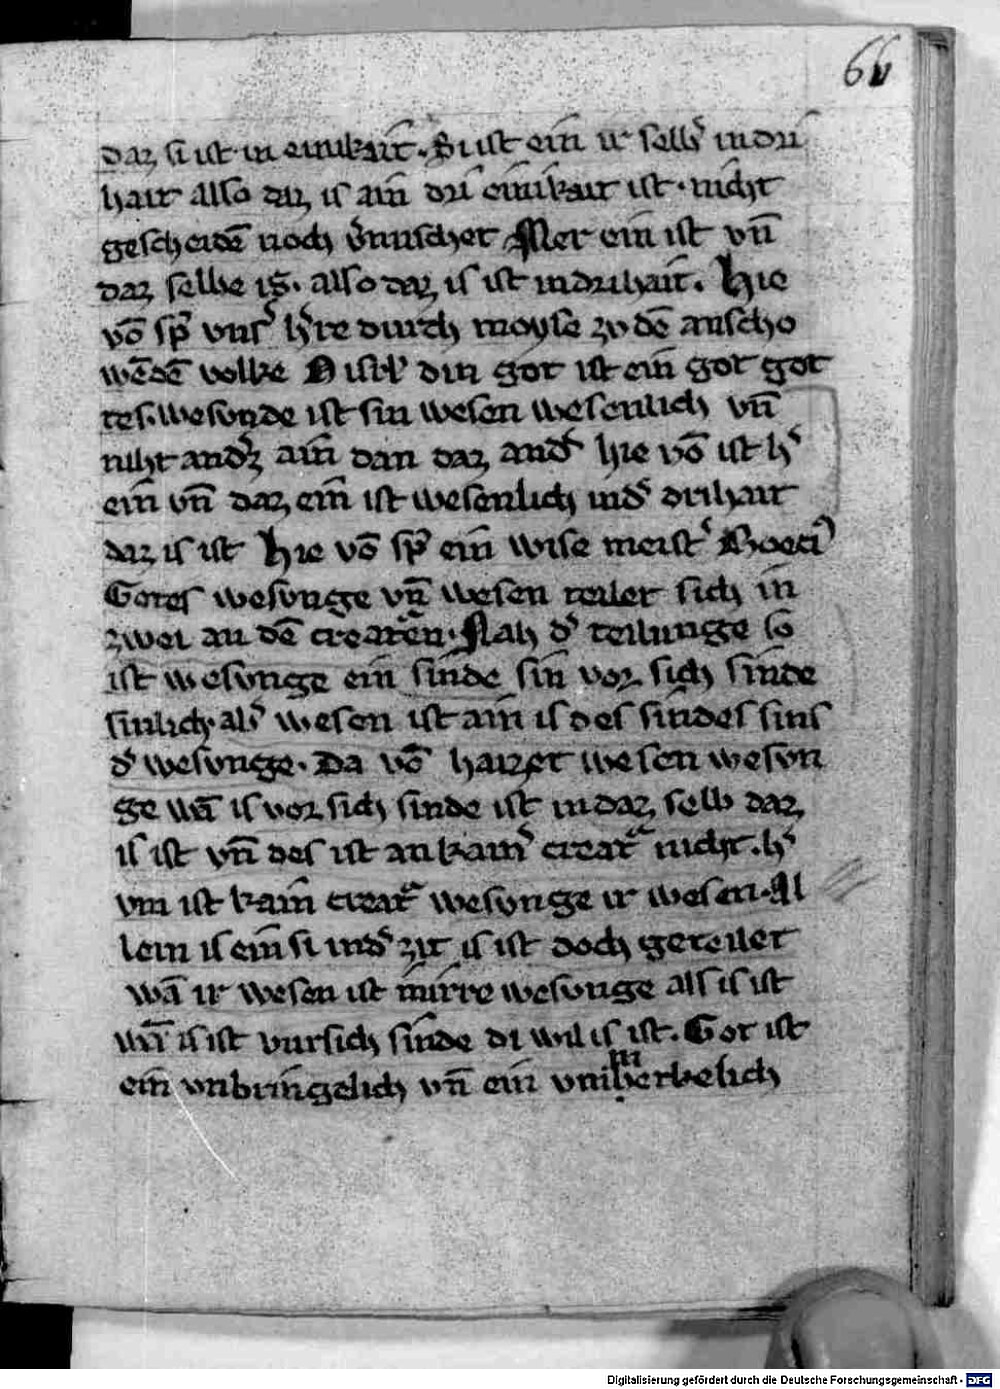 66
daz si ist in einikait. Si ist ein ir selbꝰ in dri
hait also daz is ain dri einikait ist. nicht
gescheidē noch v̓muschet Mer ein ist vn̄
daz selbe is. also daz is ist in drihait. Hie
vō sp̄ͬ vnſꝰ h̓re durch moyſe zv dē anscho
wēdē volke Disrl̓ din got ist ein got got
tes. wesonde ist sin wesen wesenlich vn̄
niht andꝰz ain dan daz andꝰ hie vō ist hꝰ
ein vn̄ daz ein ist wesenlich in dꝰ drihait
daz is ist Hie vō sp̄ͬ ein wise meistꝰ Boeciꝰ
Gotes wesvnge vn̄ wesen teilet sich in
zwei an dē creatᵉn. Nah dꝰ teilunge so
ist wesvnge ein sinde sin vor sich sinde
sinlich. alsꝰ wesen ist ain is des sindes sins
dꝰ wesvnge. Da vō haizet wesen wesvn
ge wā is vor sich sinde ist in daz selb daz
is ist vn̄ des ist an kainꝰ creatᵉ nicht. hꝰ
vm ist kain creatᵉ wesvnge ir wesen. Al
lein is ein si in dꝰ zit is ist doch geteilet
wā ir wesen ist nit irre wesvnge als is ist
wā is ist vur sich sinde di wil is ist. Got ist
ein vnbringelich vn̄ ein vnmerkelich
Digitalisierung gefördert durch die Deutsche Forschungsgemeinschaft - DFG